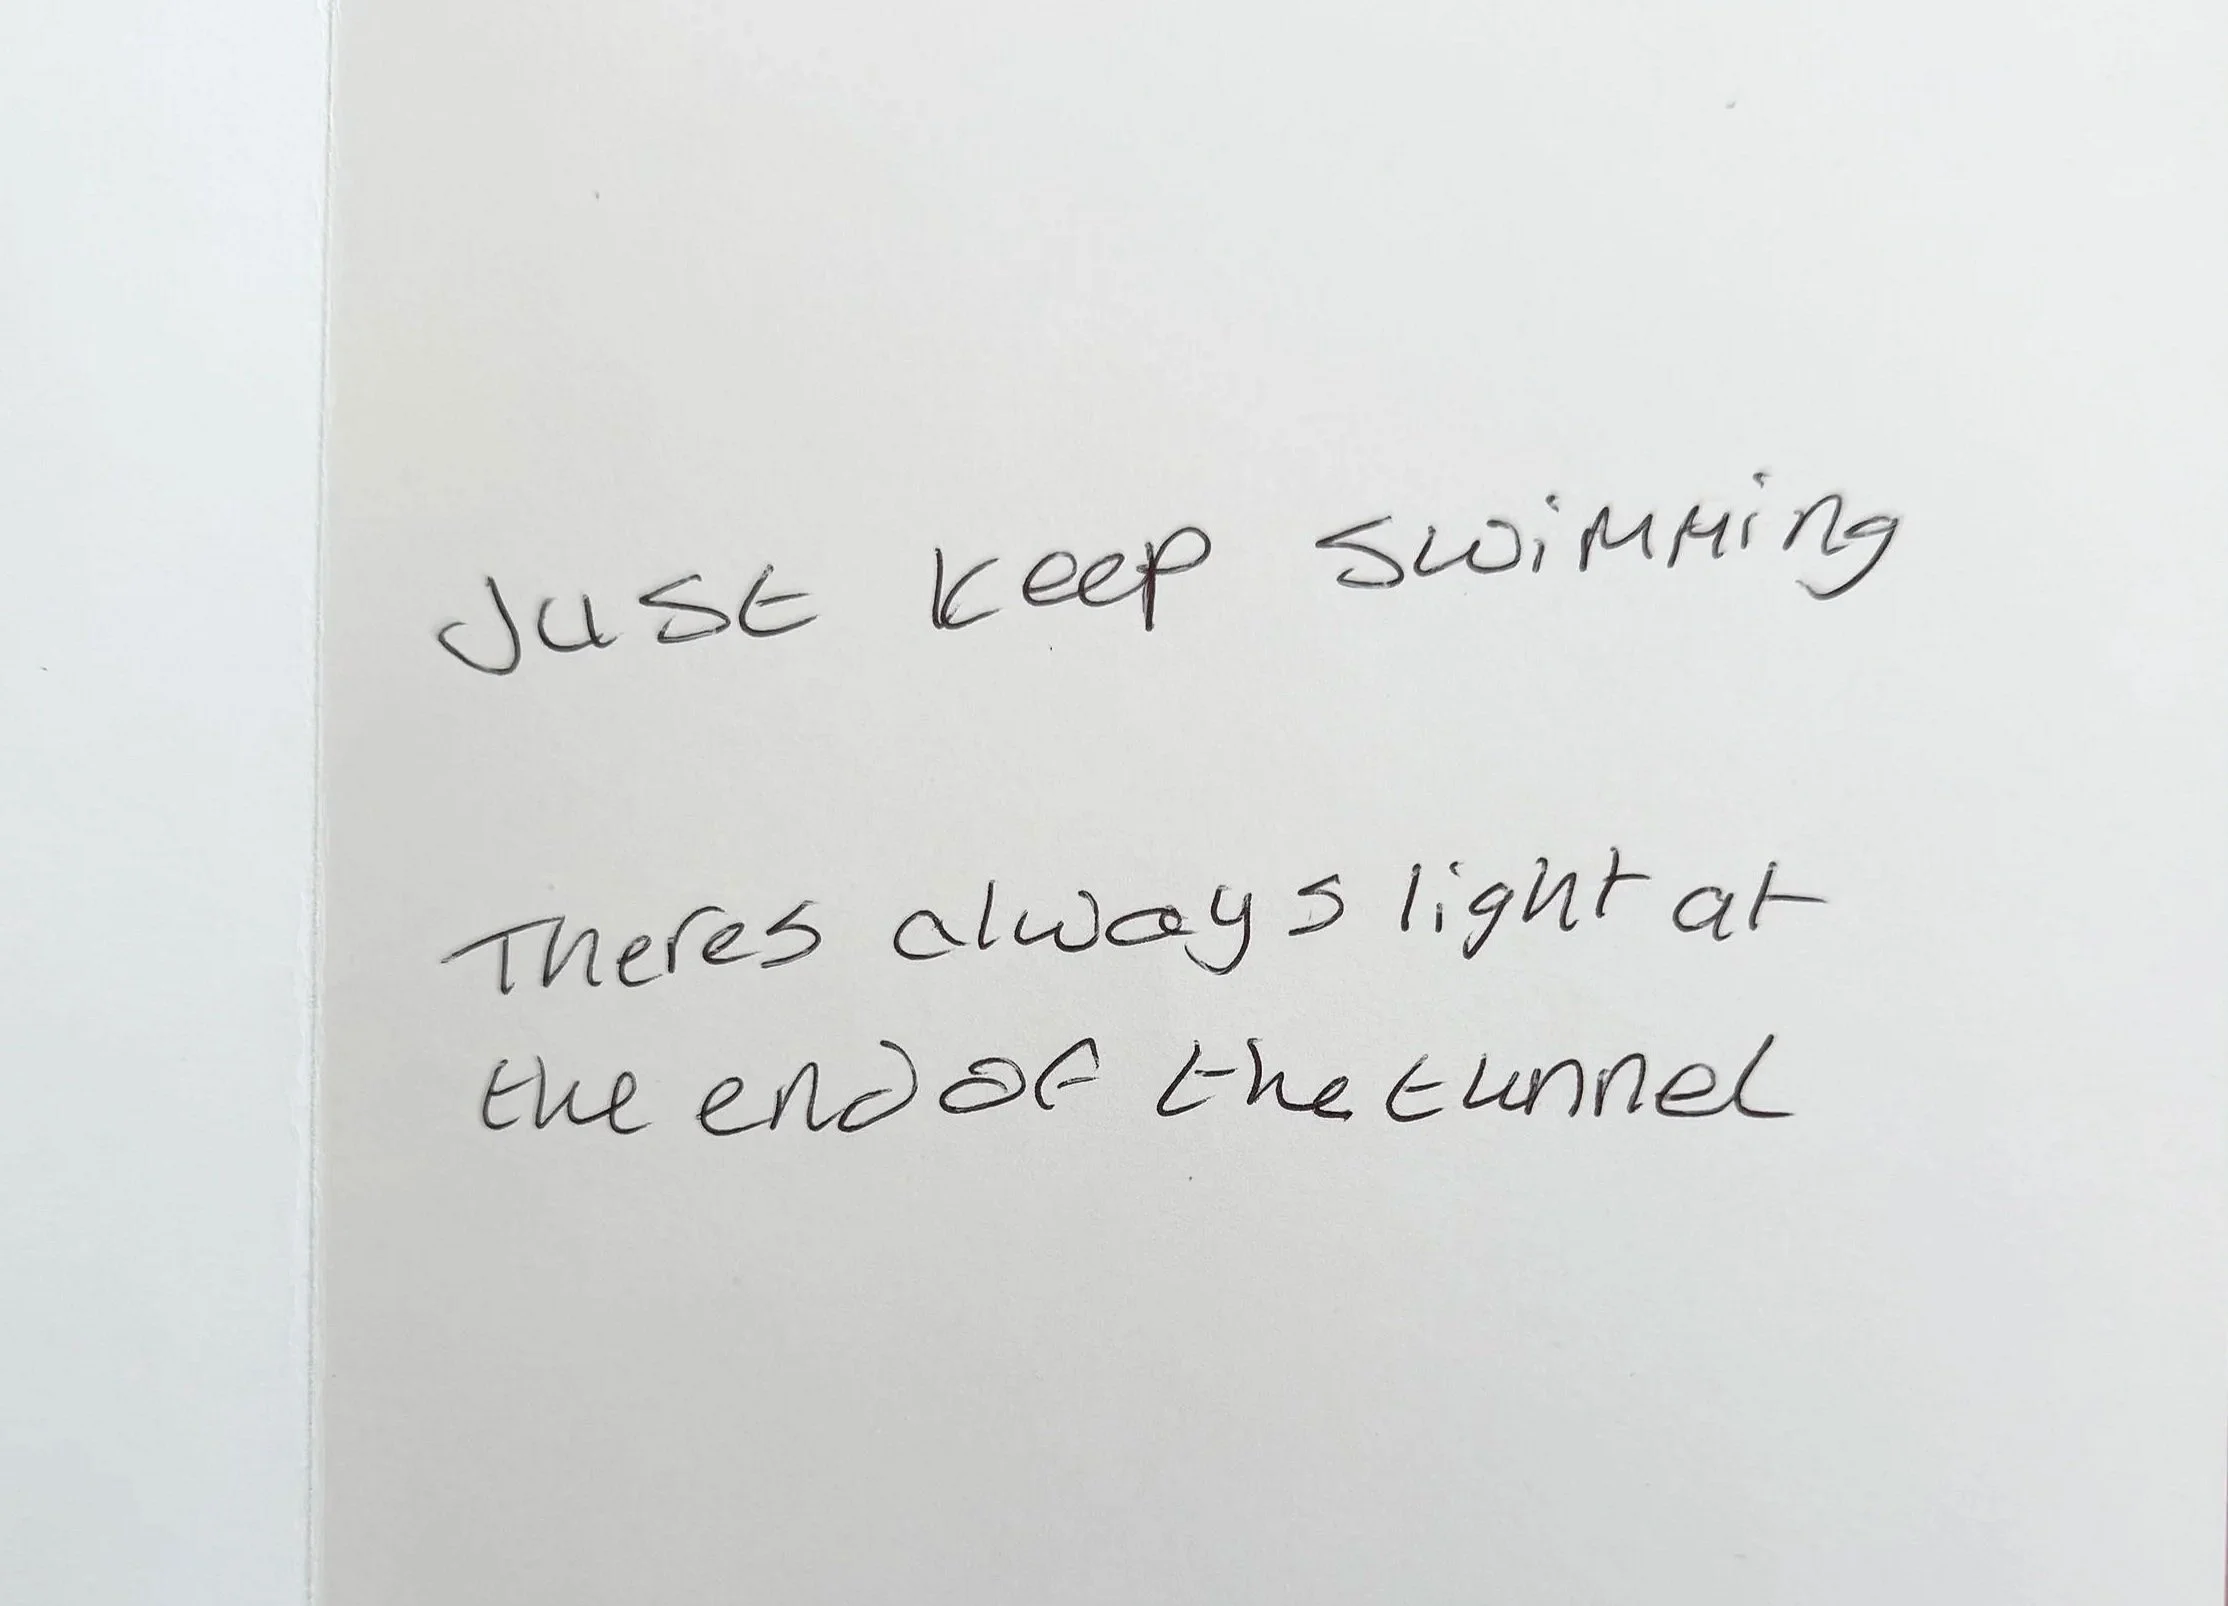 Just keep swimming
Theres always light at
the end of the tunnel